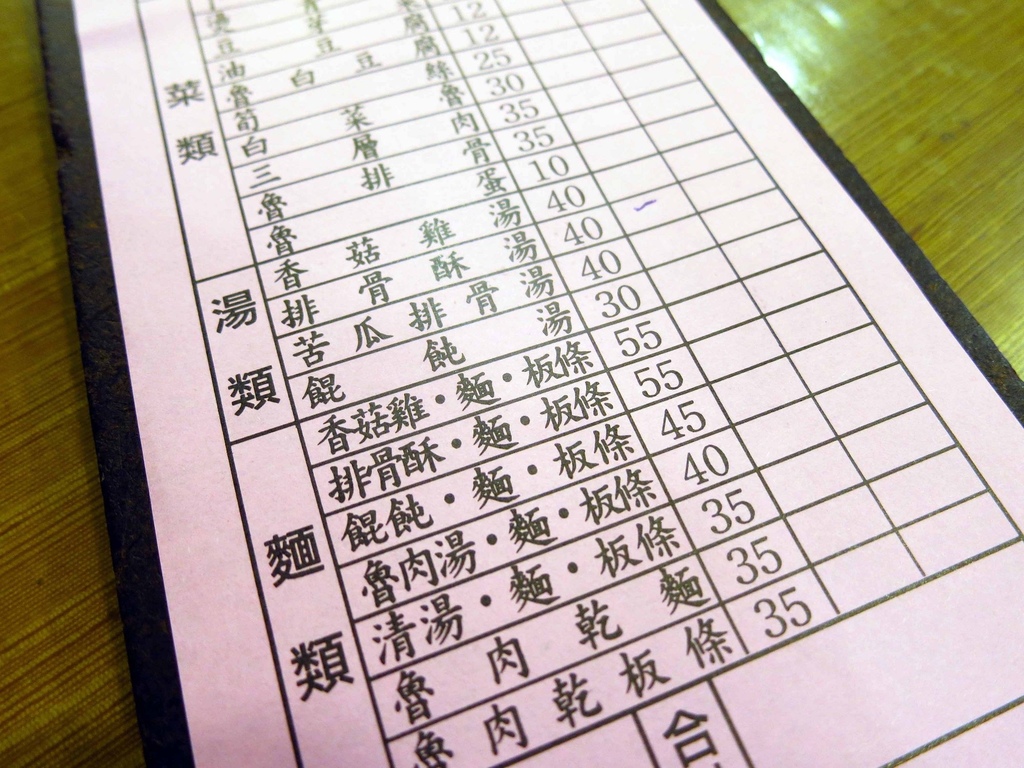 菜類
豆芽菜
油豆腐 12
魯白豆腐 12
筍絲 25
白菜魯 30
三層肉 35
魯排骨 35
魯蛋 10
湯類
香菇雞湯 40
排骨酥湯 40
苦瓜排骨湯 40
餛飩湯 30
麵類
香菇雞・麵・板條 55
排骨酥・麵・板條 55
餛飩・麵・板條 45
魯肉湯・麵・板條 40
清湯・麵・板條 35
魯肉乾麵 35
魯肉乾板條 35
合